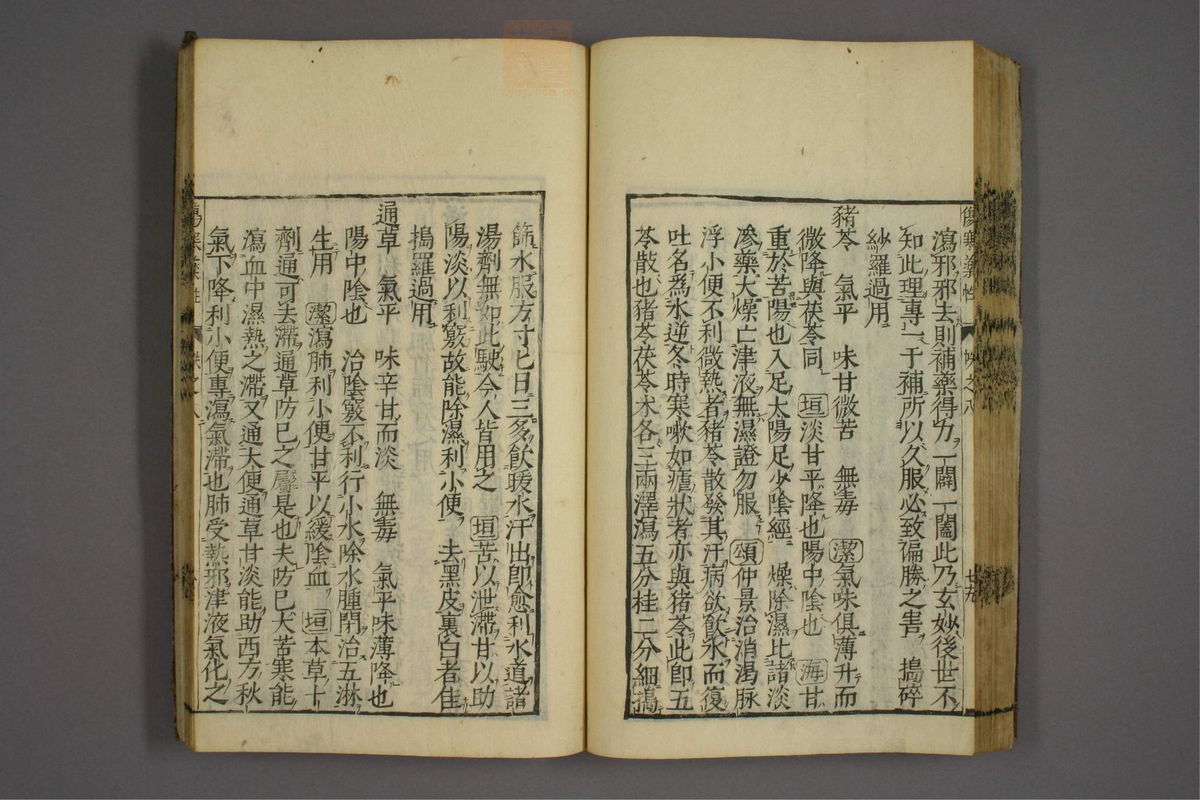 瀉邪邪去則補藥得力一闢一闔此乃玄妙後世不
知此理專一于補所以久服必致偏勝之害 搗碎
紗羅過用
豬苓 氣平 味甘微苦 無毒 潔氣味俱薄升而
微降與茯苓同 垣淡甘平降也陽中陰也 海甘
重於苦陽也入足太陽足少陰經 燥除濕比諸淡
滲藥大燥亡津液無濕證勿服 頌仲景治消渴脉
浮小便不利微熱者豬苓散發其汗病欲飲水而復
吐名爲水逆冬時寒嗽如瘧狀者亦與豬苓此卽五
苓散也豬苓茯苓木各三兩澤瀉五分桂二分細搗
篩水服方寸匕日三多飲暖水汗出卽愈利水道諸
湯劑無如此駛今人皆用之 垣苦以泄滯甘以助
陽淡以利竅故能除濕利小便 去黑皮裏白者佳
搗羅過用
通草 氣平 味辛甘而淡 無毒 氣平味薄降也
陽中陰也 治陰竅不利行小水除水腫閉治五淋
生用 潔瀉肺利小便甘平以緩陰血 垣本草十
劑通可去滯通草防巳之屬是也夫防巳大苦寒能
瀉血中濕熱之滯又通大便通草甘淡能助西方秋
氣下降利小便專瀉氣滯也肺受熱邪津液氣化之